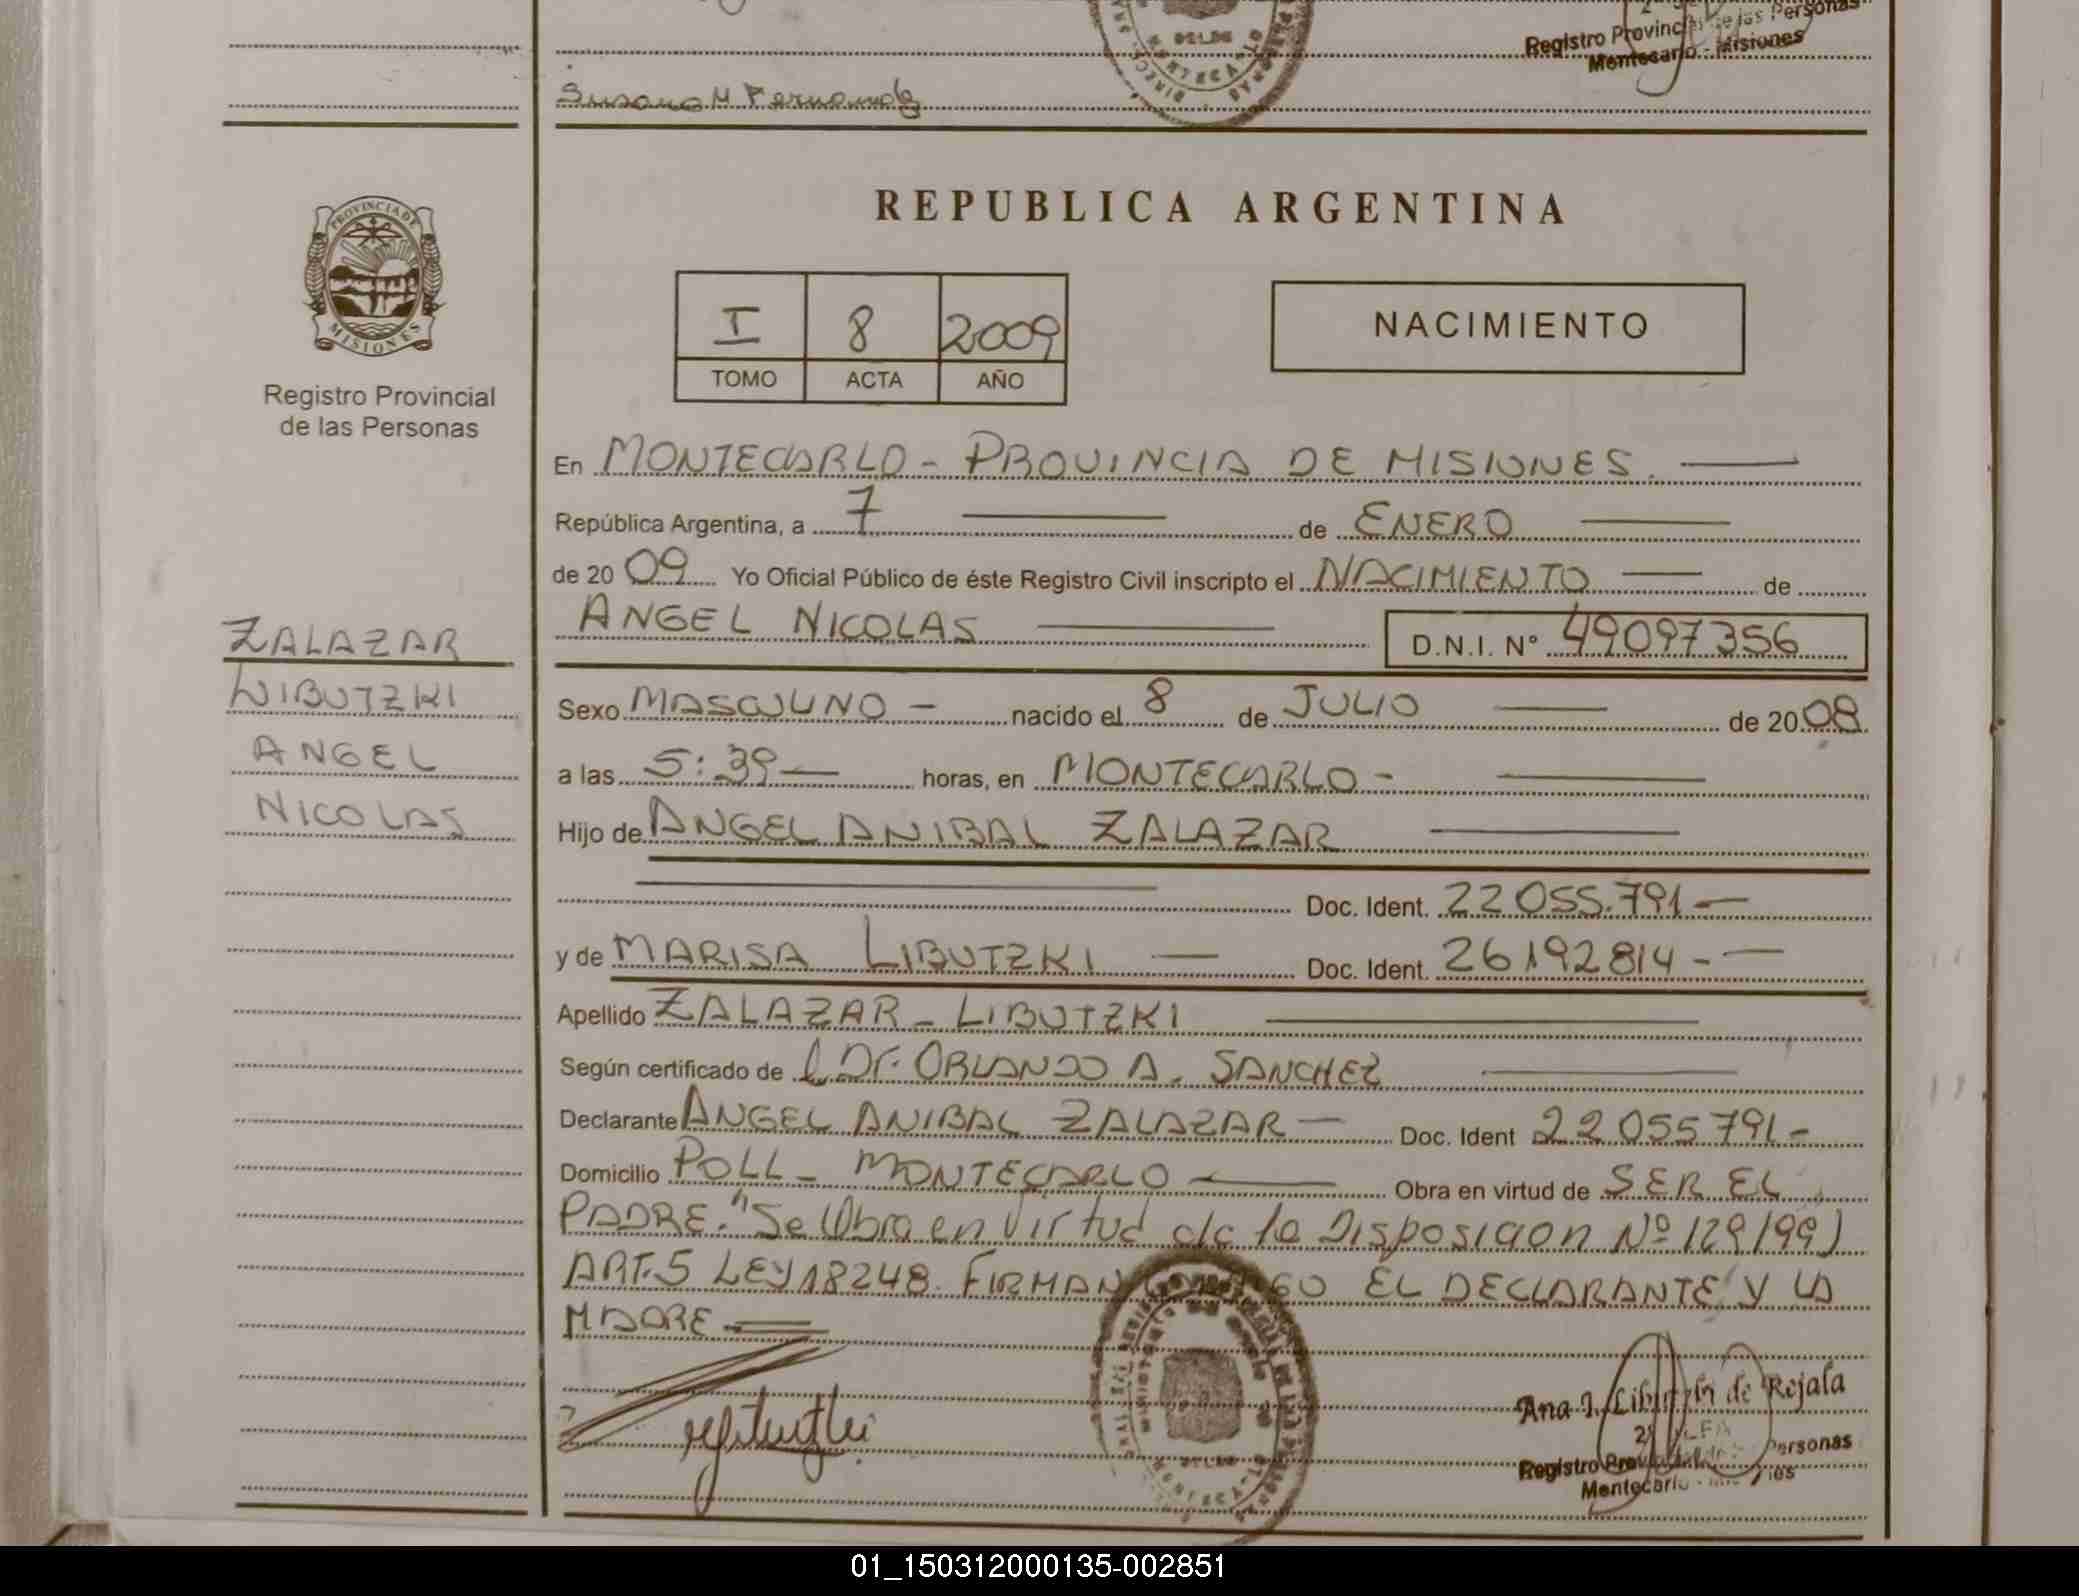 Susana M Fernandez
Registro Provincial de las Personas
Montecarlo - Misiones
PROVINCIA DE
MISIONES
Registro Provincial
de las Personas
REPUBLICA ARGENTINA
I 8 2009
TOMO ACTA AÑO
NACIMIENTO
En MONTECARLO - PROVINCIA DE MISIONES.
República Argentina, a 7 de ENERO
de 20 09 Yo Oficial Público de éste Registro Civil inscripto el NACIMIENTO de
ANGEL NICOLAS D.N.I. N° 49097356
ZALAZAR
LIBUTZKI
ANGEL
NICOLAS
Sexo MASCULINO - nacido el 8 de JULIO de 20 08
a las 5:39 horas, en MONTECARLO -
Hijo de ANGEL ANIBAL ZALAZAR
Doc. Ident. 22055.791
y de MARISA LIBUTZKI Doc. Ident. 26192814 -
Apellido ZALAZAR - LIBUTZKI
Según certificado de l Dr. ORLANDO A. SANCHEZ
Declarante ANGEL ANIBAL ZALAZAR Doc. Ident 22055791-
Domicilio POLL - MONTECARLO Obra en virtud de SER EL
PADRE. "Se Obra en Virtud de la Disposicion Nº 129/99)
ART.5 LEY 18248. FIRMAN EL DECLARANTE Y LA
MADRE
Ana I. de Rejala
Registro Personas
Montecarlo
01_150312000135-002851